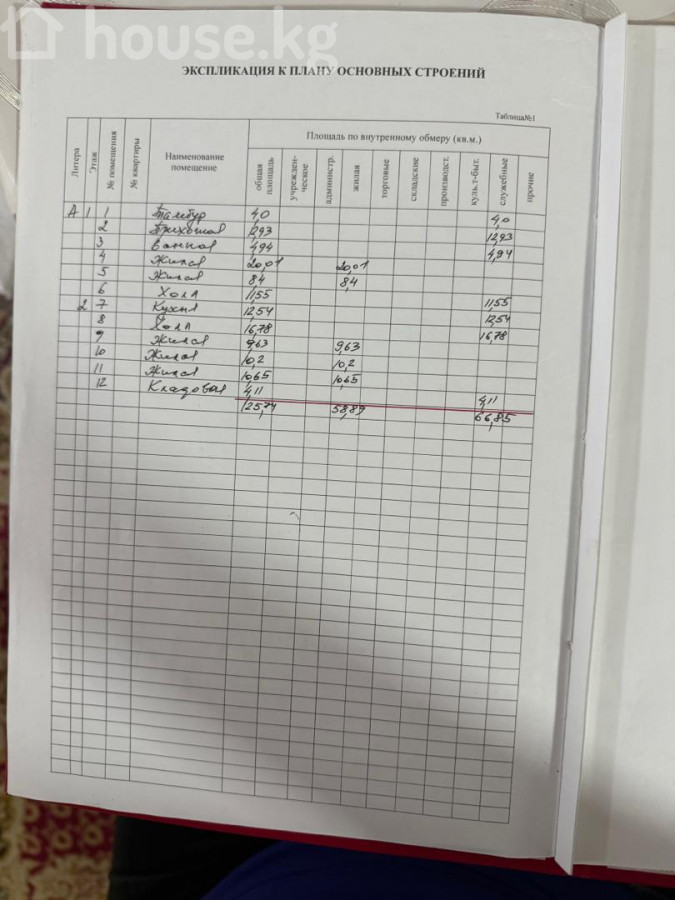 house.kg
ЭКСПЛИКАЦИЯ К ПЛАНУ ОСНОВНЫХ СТРОЕНИЙ
Таблица№1
Литера Этаж № помещения № квартиры Наименование помещение Площадь по внутреннему обмеру (кв.м.)
общая площадь учрежден-ческое администр. жилая торговые складские производст. куль.т-быт. служебные прочие
А 1 1 Тамбур 4,0 4,0
2 Прихожая 12,93 12,93
3 Ванная 4,94 4,94
4 Жилая 20,01 20,01
5 Жилая 8,4 8,4
6 Холл 11,55 11,55
2 7 Кухня 12,54 12,54
8 Холл 16,78 16,78
9 Жилая 9,63 9,63
10 Жилая 10,2 10,2
11 Жилая 10,65 10,65
12 Кладовая 4,11 4,11
125,74 58,89 66,85